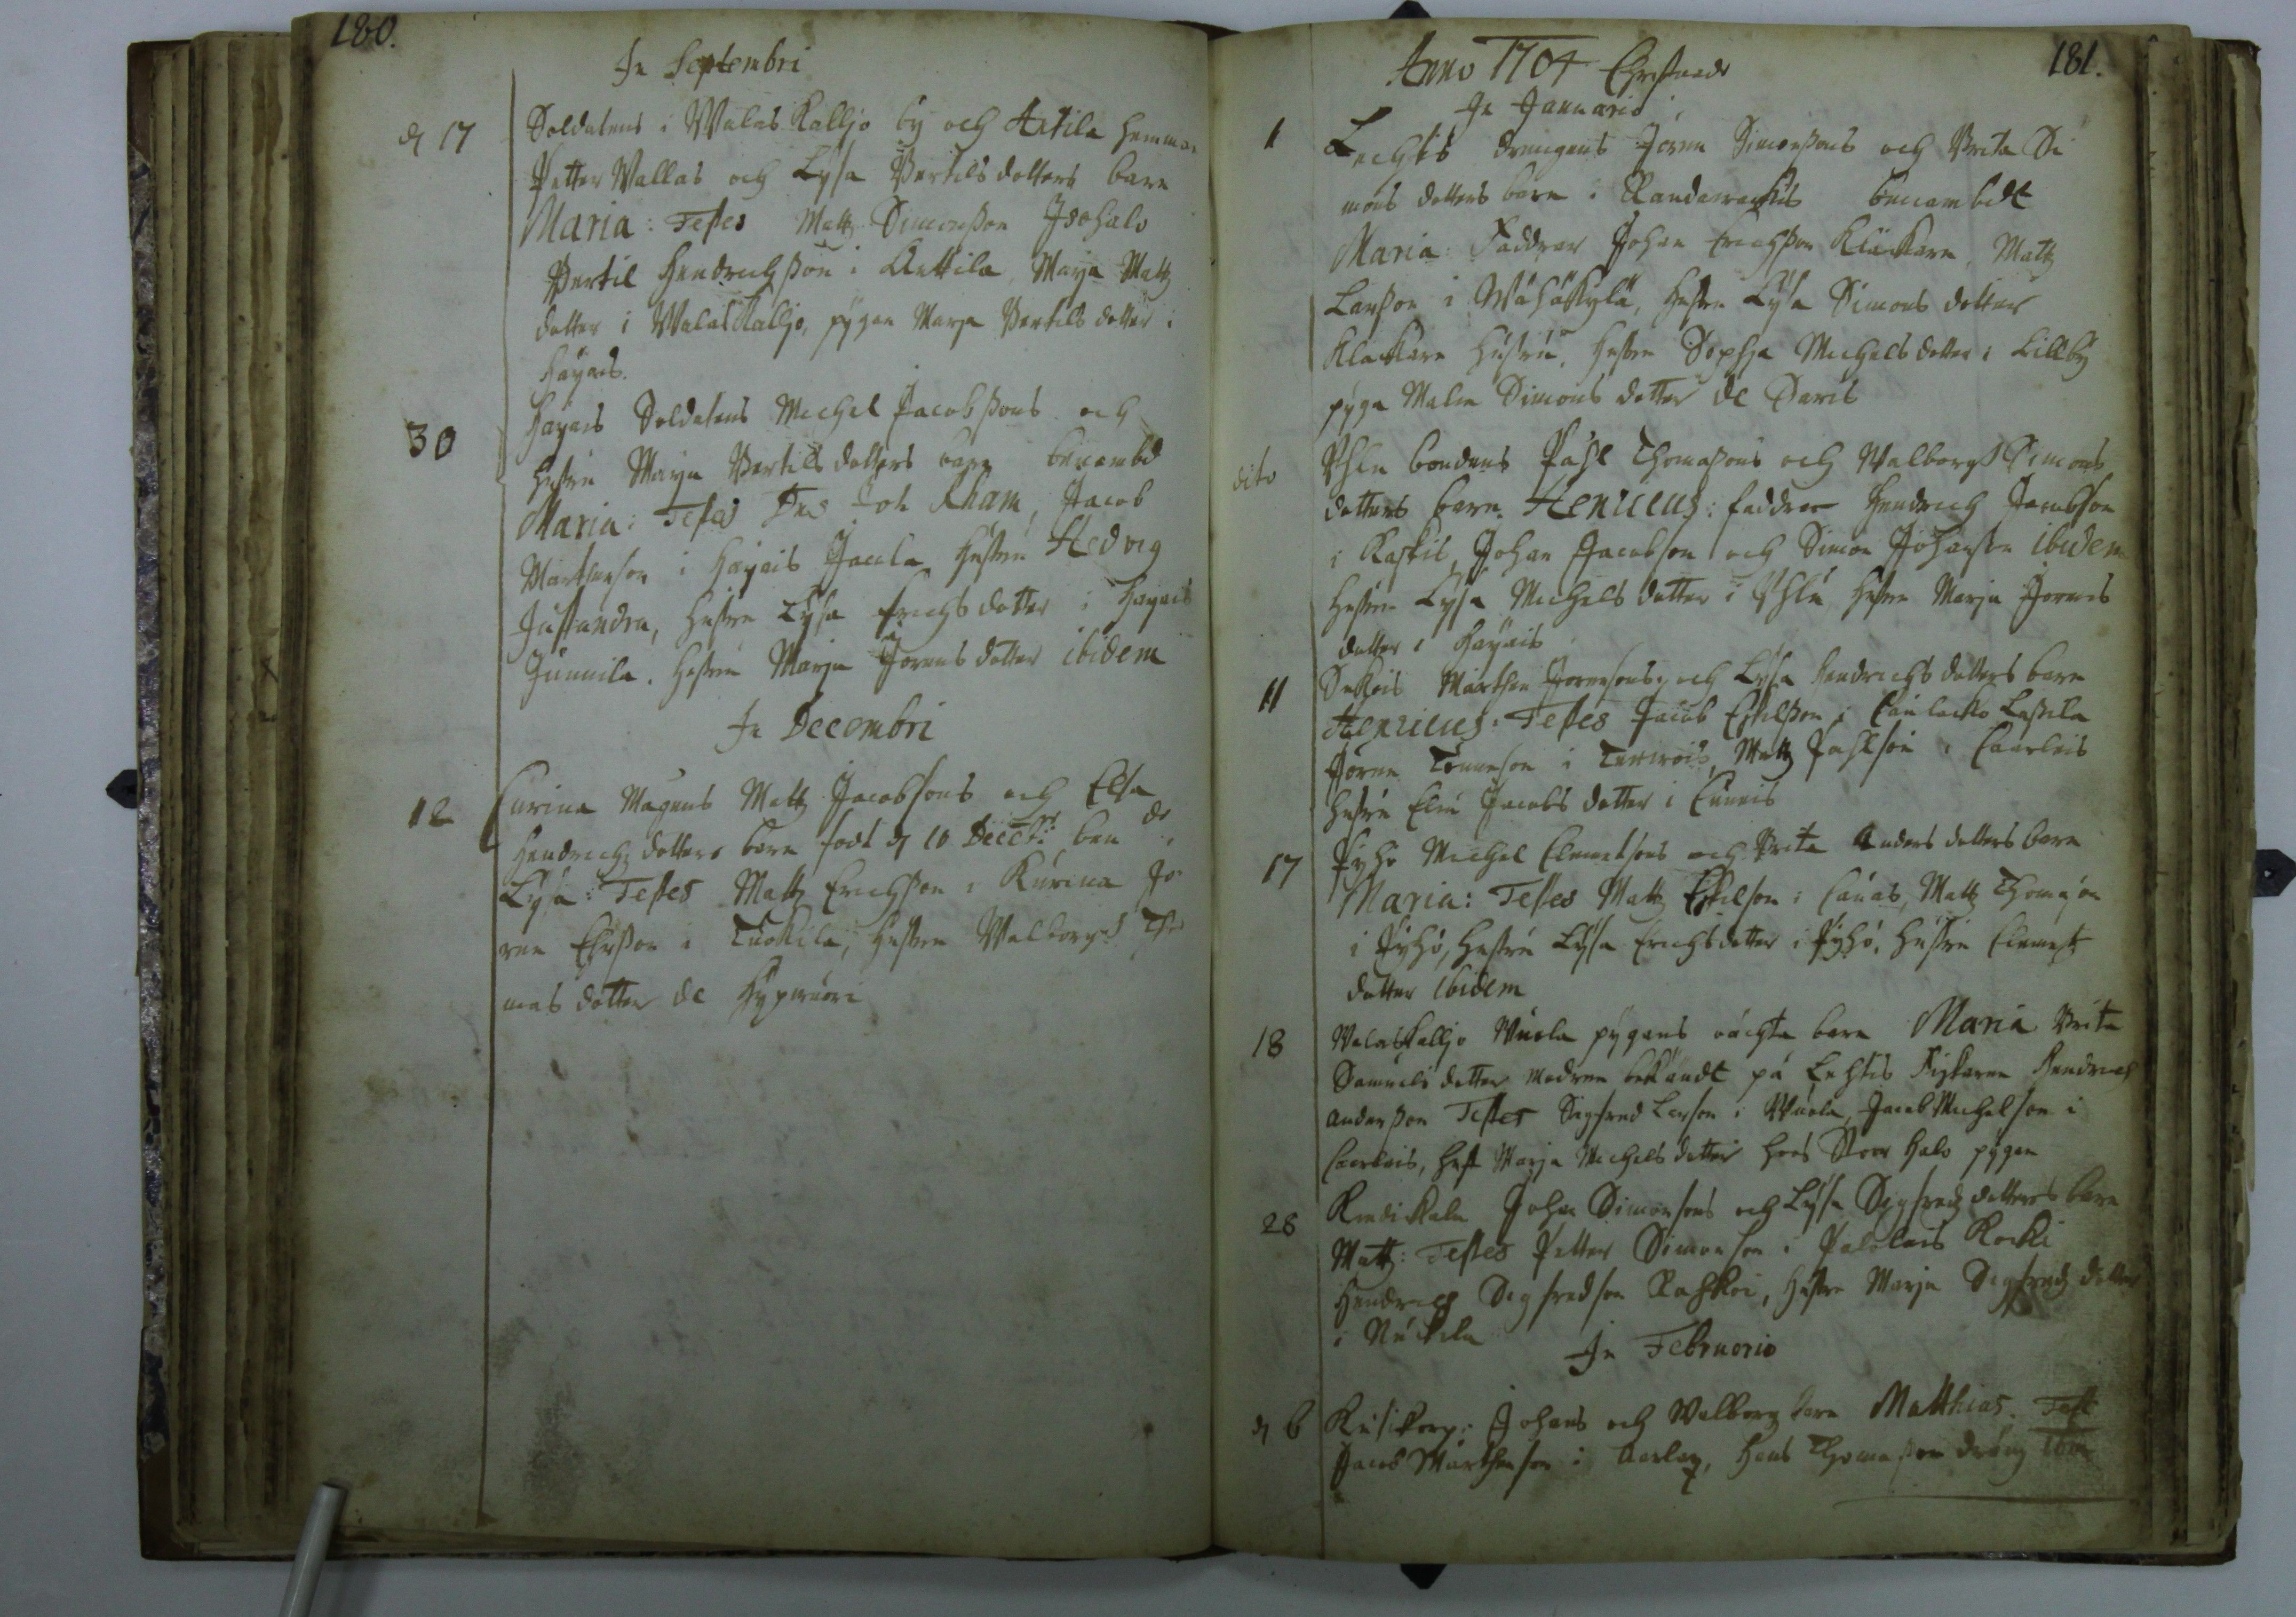 180.
In Septembri
d 17 Soldatens i Walas Kalljo by och Attila hemman
Petter Wallas och Lysa Bertils dotters barn
Maria: Testes Matz Simonsson Isohalo
Bertil Hendrichsson i Anttila, Marja Matz
dotter i WalasKalljo, pygan Marja Bertils dotter i
Häyäis.
30 Häyäis Soldatens Michel Jacobssons och
hustru Marja Bertils dotters barn benembd
Maria: Testes Dns Joh Rham, Jacob
Mårthenson i Häyäis Jacula hustru Hedvig
Justandra, hustru Lysa Erichs dotter i Häyäis
Junnila. hustru Marja Jörens dotter ibidem
In Decembri
12 Curina Magens Matz Jacobsons och Elsa
Hendrichz dotters barn födt d 10 Decebr: ben de
Lysa: Testes Matz Erichsson i Kurina Jö
ren Erssson i Tuokila, hustru Walborg Tho
mas dotter de Hypwuori
181.
Anno 1704 Christnade
In Januario
1 Lechtis drengens Jören Simonssons och Brita Si
mons dotters barn i Randawachis benembdt
Maria: Faddrar Johan Erichsson Klåckare, Matz
Larsson i Wähäkylä, hustru Lysa Simons dotter
Klåckare hustru, hustru Sophja Michels dotter i Lillby
pyga Malin Simons dotter de Saris
dito Yhlu bondens Påhl Thomassons och Walborg Simons
dotters barn. Henricus: faddrar Hendrich Jacobsson
i Raskis, Johan Jacobson och Simon Johansson ibidem
hustru Lysa Michels dotter i Yhlu hustru Marja Jörens
dotter i Häyäis
11 Sukois Mårthen Jörensons och Lysa Hendrichs dotters barn
Henricus: Testes Jacob Eskilsson i Cau lacko Lassila
Jören Tomasson i Tammois, Matz Påhlson i Caarlois
hustru Elin Jacobs dotter i Cunnis
17 Pyhö Michel Clemetsons och Brita Anders dotters barn
Maria: Testes Matz Eskilson i Canas, Matz Thomason
i Pyhö, hustru Lysa Erichsdotter i Pyhö, hustru Clemetz
dotter ibidem
18 Walaskalljo Wuola pygans oächta barn Maria Brita
Samuels dotter modren bekändt på Lechtis Fiskaren Hendrich
Andersson Testes Sigfred Larson i Wuola, Jacob Michelson i
Caarlois, hust Marja Michels dotter hoos Stoor halo pygan
28 Knedikala Johan Simonsons och Lysa Sigfredz dotters barn
Matz: Testes Petter Simonson i Palolais Kocki
Hendrich Sigfredson Kaskoi, hustru Marja Sigfredz dotter
i Nickila
In Februorio
d 6 Kusikorp: Johans och Walborg barn Matthias. Test
Jacob Mårthenson i Aarlax, Hans Thomasson dräng ibm